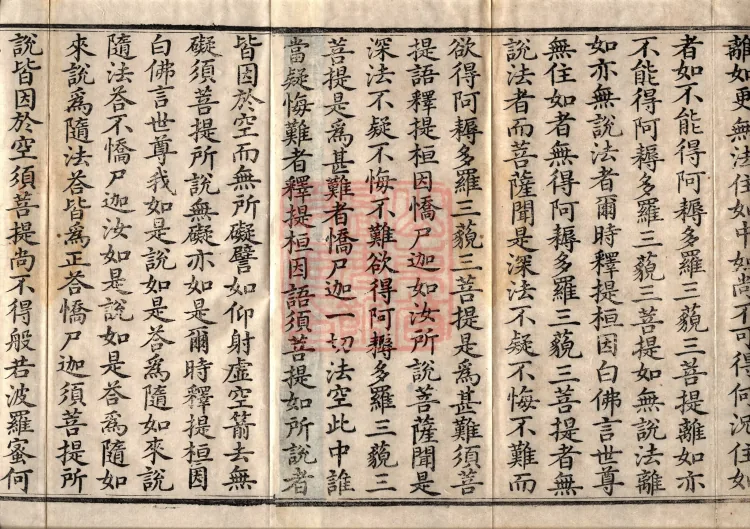 離如更無法住如中如尚不可得何況住如
者如不能得阿耨多羅三藐三菩提離如亦
不能得阿耨多羅三藐三菩提如無說法離
如亦無說法者爾時釋提桓因白佛言世尊
無住如者無得阿耨多羅三藐三菩提者無
說法者而菩薩聞是深法不疑不悔不難而
欲得阿耨多羅三藐三菩提是爲甚難須菩
提語釋提桓因憍尸迦如汝所說菩薩聞是
深法不疑不悔不難欲得阿耨多羅三藐三
菩提是爲甚難者憍尸迦一切法空此中誰
當疑悔難者釋提桓因語須菩提如所說者
皆因於空而無所礙譬如仰射虛空箭去無
礙須菩提所說無礙亦如是爾時釋提桓因
白佛言世尊我如是說如是答爲隨如來說
隨法答不憍尸迦汝如是說如是答爲隨如
來說爲隨法答皆爲正答憍尸迦須菩提所
說皆因於空須菩提尚不得般若波羅蜜何